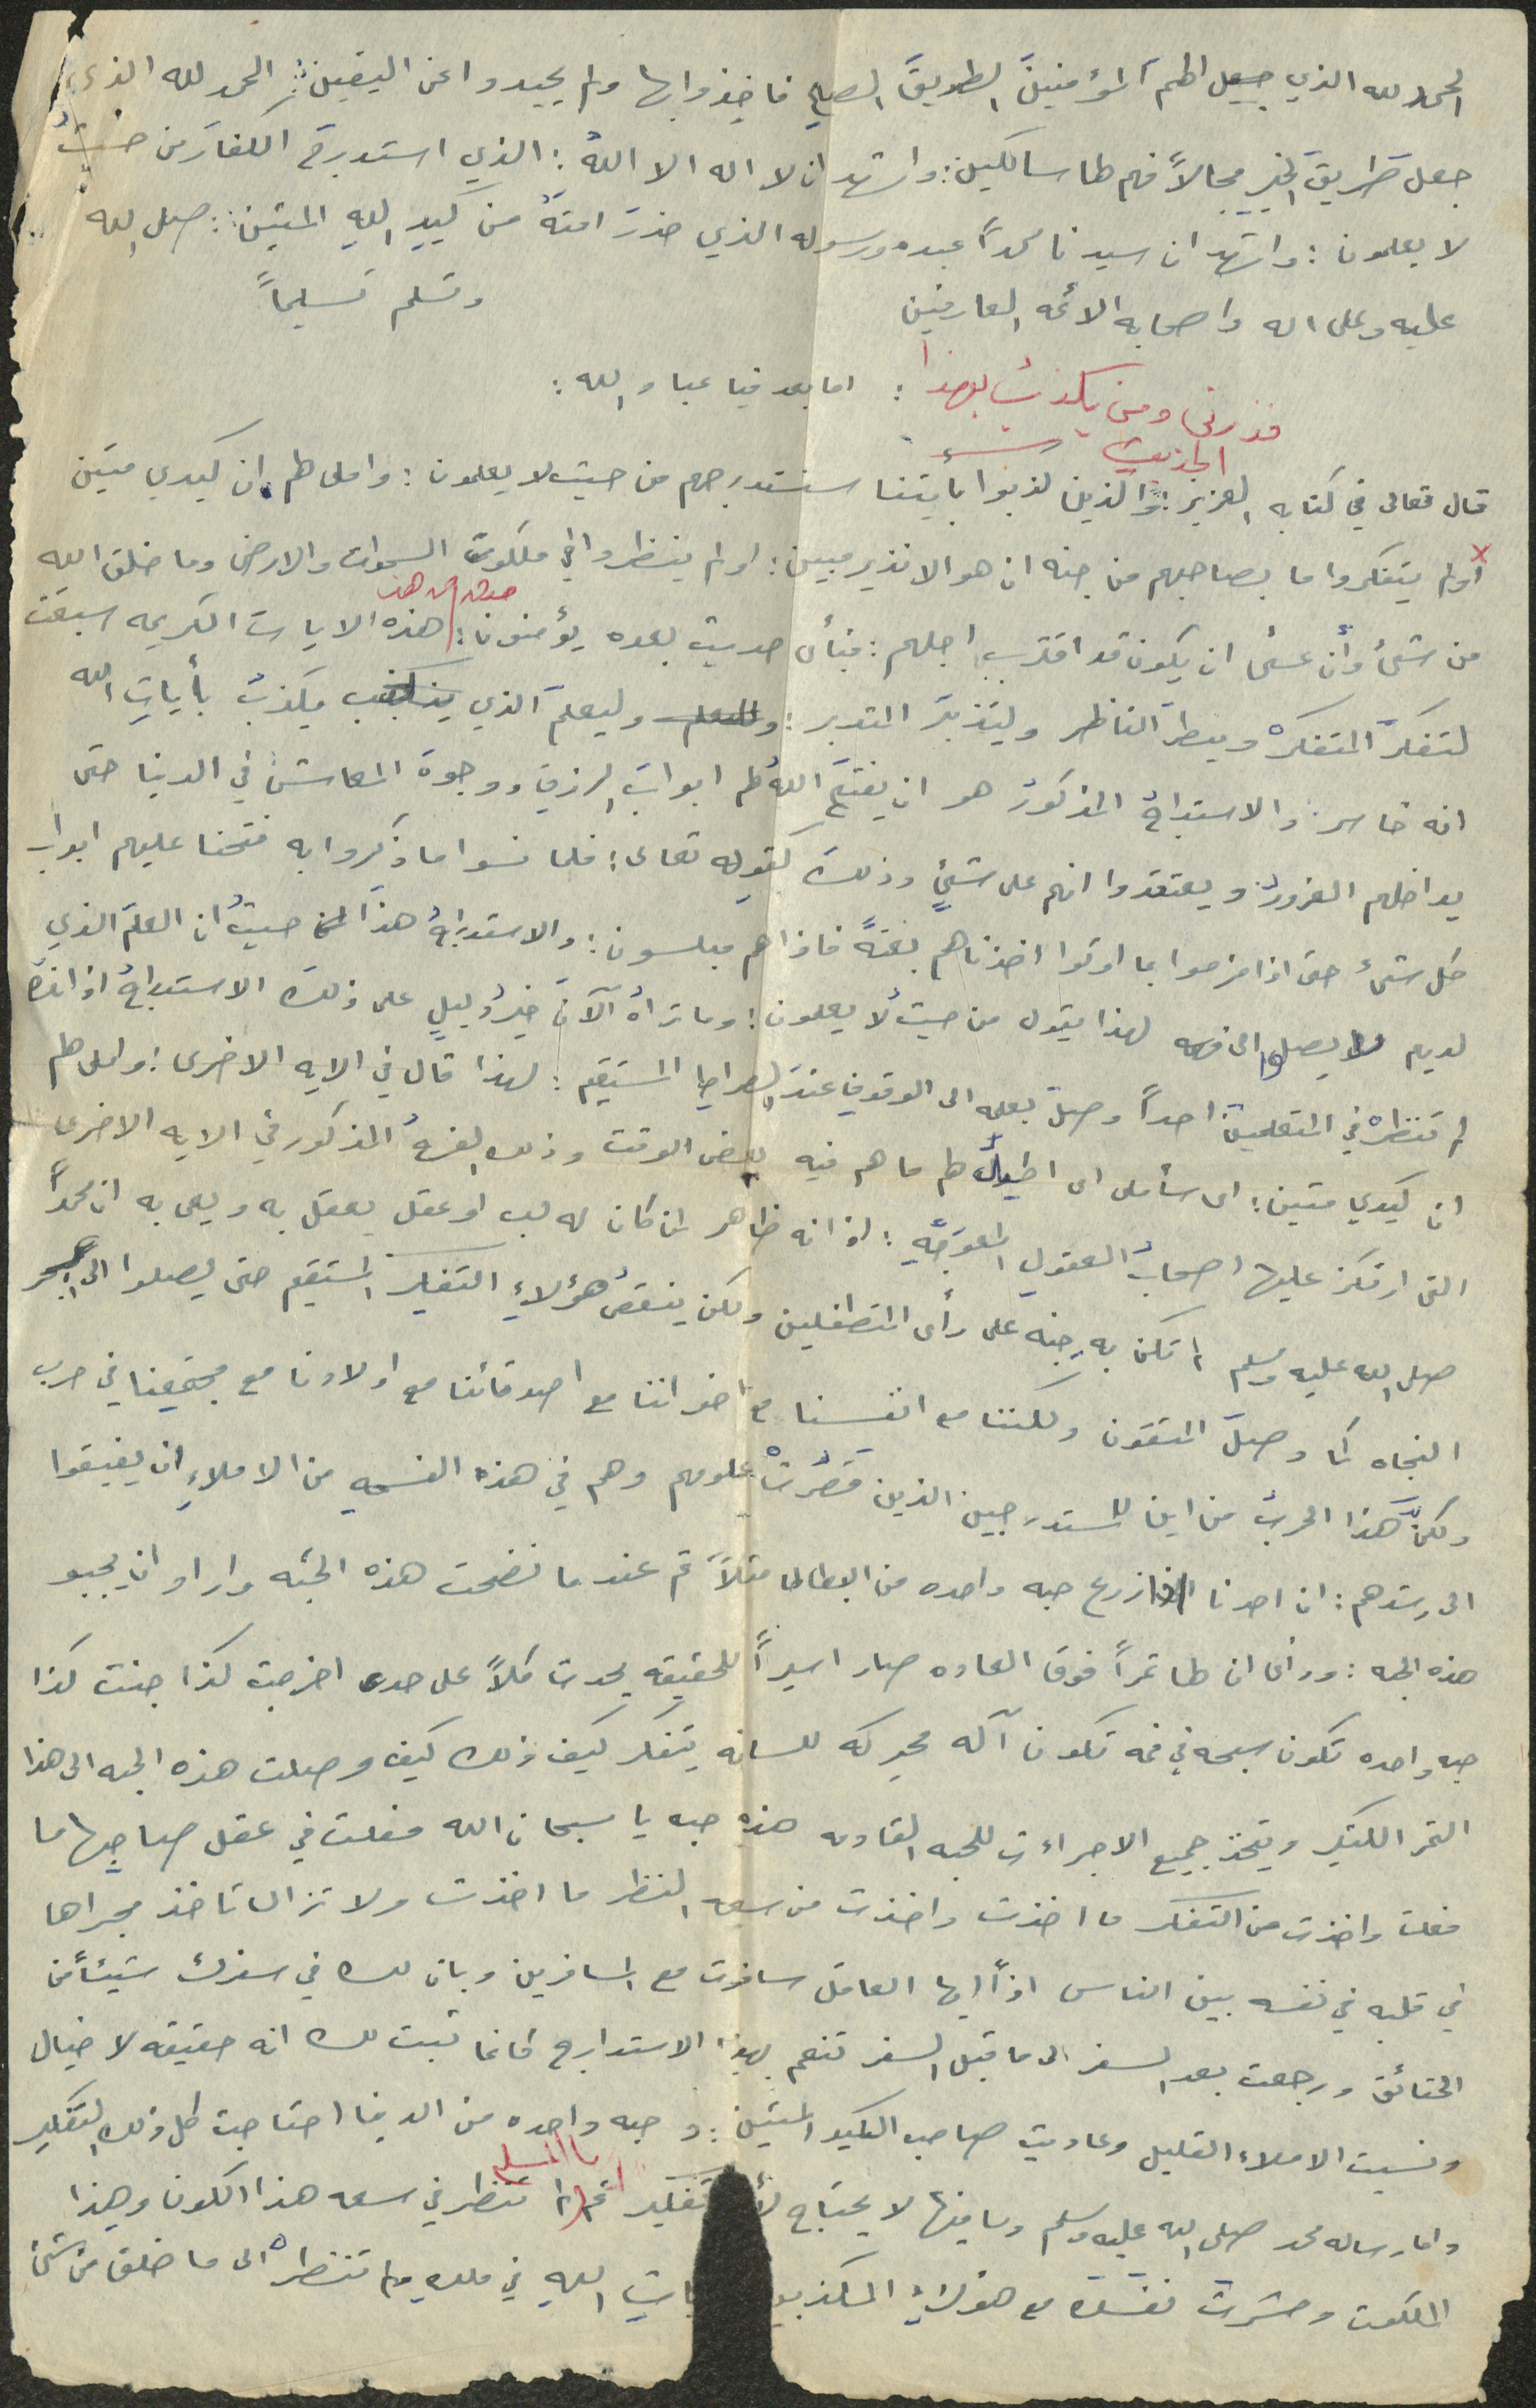 الحمد لله الذي جعل لهم المؤمنين الطريق الصلح فاخذوا بها ولم يحيدوا عن اليقين: الحمد لله الذي
جعل طريق الخير مجالاً فهم لها سالكين: واشهد ان لا اله الا الله: الذي استدرج الكفار من حيث
لا يعلمون: واشهد ان سيدنا محمداً عبده ورسوله الذي حذر امته من كيد الله المتين: صلى الله
عليه وعلى اله واصحابه الائمه العارفين وتسلم تسليماً
فذرني ومن يكذب بهذا : اما بعد فيا عباد الله:
الحديث
قال تعالى في كتابه العزيز: والذين كذبوا بأيتنا سنستدرجهم من حيث لا يعلمون: واملى لهم ان كيدي متين
اولم يتفكروا ما بصاحبهم من جنه ان هو الا نذير مبين: اولم ينظروا في ملكوت السموات والارض وما خلق الله
من شئ وأن عسى ان يكون قد اقترب اجلهم: فبأى حديث بعده يؤمنون: هذه الايات الكريمه سبقت
لتفكر المتفكر وينظر الناظر وليتدبر المتدبر: وليعلم الذي يكذب بأيات الله
انه خاسر: والاستدراج المذكور هو ان يفتح الله لهم ابواب الرزق ووجوة المعاش في الدنيا حتى
يداخلهم الغرور ويعتقدوا انهم على شئٍ وذلك كقوله تعالى: فلما نسوا ما ذكروا به فتحنا عليهم ابواب
كل شئ حتى اذا فرحوا بما اوتوا اخذناهم بغتةً فاذا هم مبلسون: والاستدراج هذا من حيث ان العلم الذي
لديهم لا يصل الى لهذا يقول من حيث لا يعلمون: وما تراه الآن خير دليلٍ على ذلك الاستدراج اذ انك
لم تنظر في المتعلمين احداً وصل بعلمه الى الوقوف عند الصراط المستقيم: لهذا قال في الايه الاخرى: واملى لهم
ان كيدي متين: اى سأملى اى اطيل لهم ما هم فيه بعض الوقت وذلك الفرح المذكور في الايه الاخرى
التى ارتكز عليها اصحاب العقول المعوجّه: اذ انه ظاهر لمن كان له لب او عقل يعقل به ويعى به ان محمداً
صلى الله عليه وسلم لم تكن به جنه على رأى المتطفلين ولكن ينقص هؤلاءِ التفكير المستقيم حتى يصلوا الى
النجاه كما وصل المتقون ولكننا مع انفسنا مع اخواننا مع اصدقائنا مع اولادنا مع مجتمعنا في حرب
ولكن هذا الحرب من اين للمستدرجين الذين قصُرت علومهم وهم في هذه الفسحه من الاملاءِ ان يفيقوا
الى رشدهم: ان احدنا اذا زرع حبه واحده من البطاطا مثلاً ثم عندما نضجت هذه الحبّه واراد ان يجبو
هذه الحبه: ورأى ان لها ثمراً فوق العاده صار اسيراً للحقيقه يحدث كلاً على حدى اخرجت كذا جنت كذا
حبه واحده تكون سبحه في فمه تكون آله محركه للسانه يتفكر كيف ذلك كيف وصلت هذه الحبه الى هذا
الثمر الكثير ويتخذ جميع الاجراءت للحبه القادمه هذه حبه يا سبحان الله فعلت في عقل صاحبها ما
فعلت واخذت من التفكر ما اخذت واخذت من سعه النظر ما اخذت ولا تزال تاخذ مجراها
في قلبه في نفسه بين الناس اذاً ايها العاقل سافرت مع المسافرين وبان لك في سفرك شيئاً من
الحقائق ورجعت بعد السفر الى ما قبل السفر تنعم بهذا الاستدراج كانما ثبت لك انه حقيقه لا خيال
ونسيت الاملاء القليل وعاديت صاحب الكيد المتين: وحبه واحده من الدنيا احتاجت كل ذلك التفكير
واما رساله محمد صلى الله عليه وسلم وما فيها لا يحتاج تفكير ثم لم تنظر في سعه هذا الكون وهذا
الملكوت وحشرت نفسك مع هؤلاءِ المكذبين الله في ملك ولم تنظر الى ما خلق من شئ